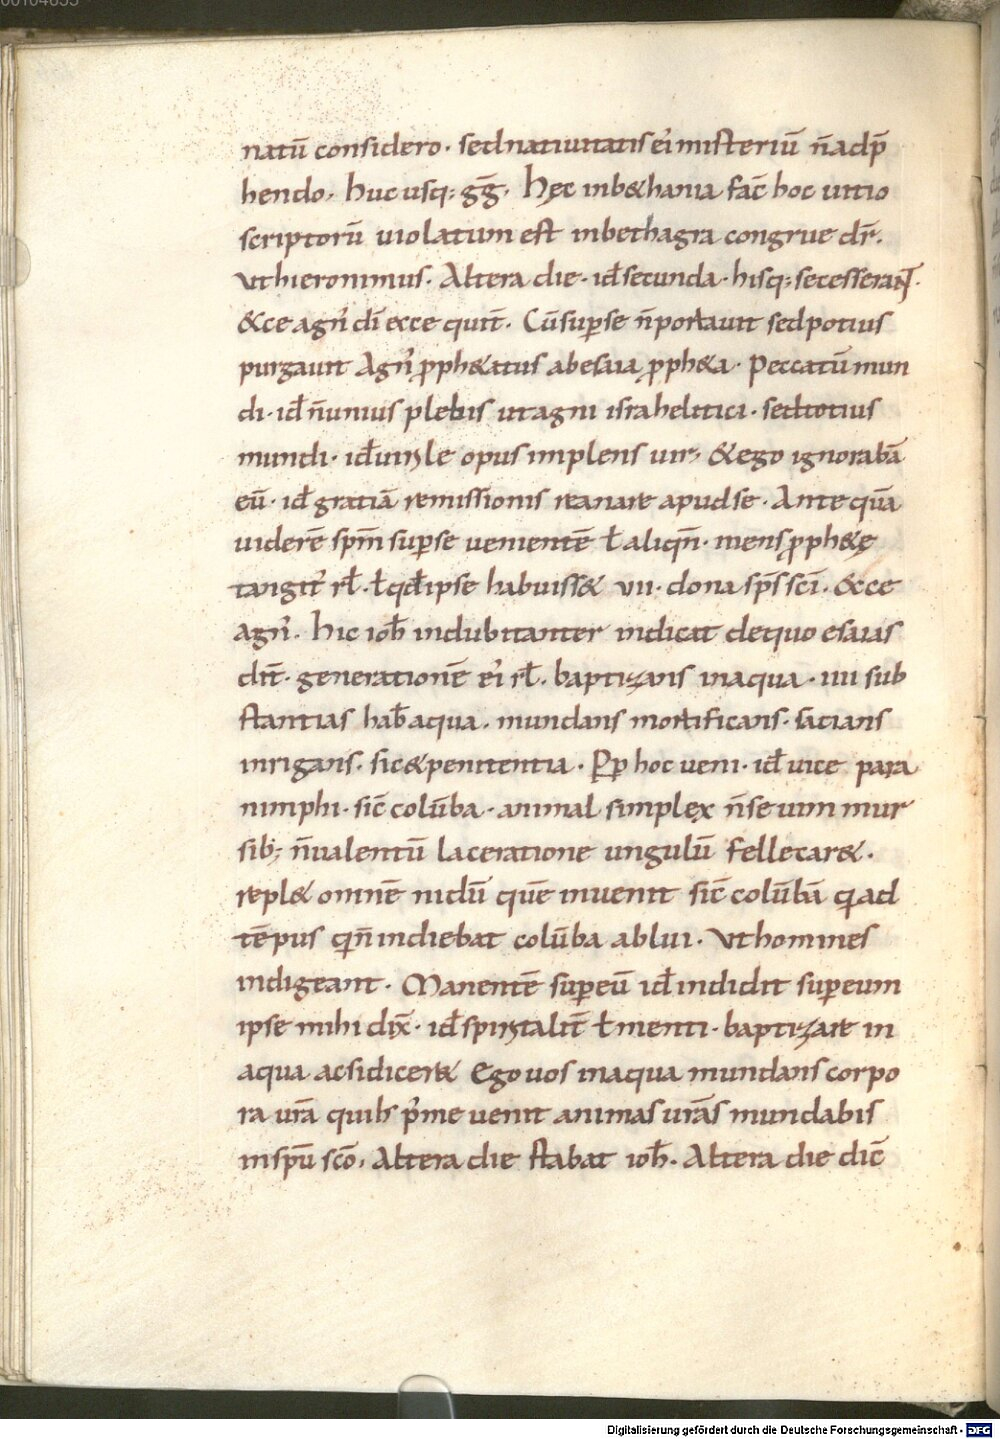 natū considero · sed natiuitatis ei᾿ misteriū n̄ adp̄
hendo · huc usq; gḡ · hęc in b&hania fac̄ hoc uitio
scriptorū uiolatum est in bethagra congrue dr̄ .
Vt hieronimus · Altera die · id̄ secunda · hisq; secesserant ·
&cce agn᾿ dī ecce quit̄ · Cū sup se n̄ portauit sed potius
purgauit Agn᾿ p̱ph&atus ab esaia p̱ph&a · Peccatū mun
di · id̄ n̄ unius plebis ut agni israhelitici · sed totius
mundi · id̄ uirile opus implens uir · & ego ignorabā
eū · id̄ gratiā remissionis reanare apud se · Ante quā
uiderē spm̄ sup se uenientē ł aliqn̄ · mens p̱ph&ę
tangit᾿ rł · ł qd̄ ipse habuiss& vii · dona sps̄ sc̄i · &cce
agn᾿ · hic ioh̄ indubitanter indicat de quo esaias
dit̄ · generationē ei᾿ rł · baptizans in aqua · iiii sub
stantias hab̄ aqua · mundans mortificans · sacians
inrigans · sic & penitentia · P̱p hoc ueni · id̄ uice para
nimphi · sic̄ colūba · animal simplex n̄ se uum mur
sib; n̄ ualentū laceratione ungulū felle car& ·
repl& omnē nidū quē inuenit sic̄ colūbā q̱ ad
tēpus q̱n̄ indiebat colūba ablui · Vt homines
indigeant · Manentē sup eū id̄ indidit sup eum
ipse mihi dix̄ · id̄ spiritalit̄ ł menti · baptizare in
aqua acsi dicer& Ego uos in aqua mundans corpo
ra urā quib; p᾿ me uenit animas urās mundabis
in spū sc̄o · Altera die stabat ioh̄ · Altera die dic̄
Digitalisierung gefördert durch die Deutsche Forschungsgemeinschaft - DFG